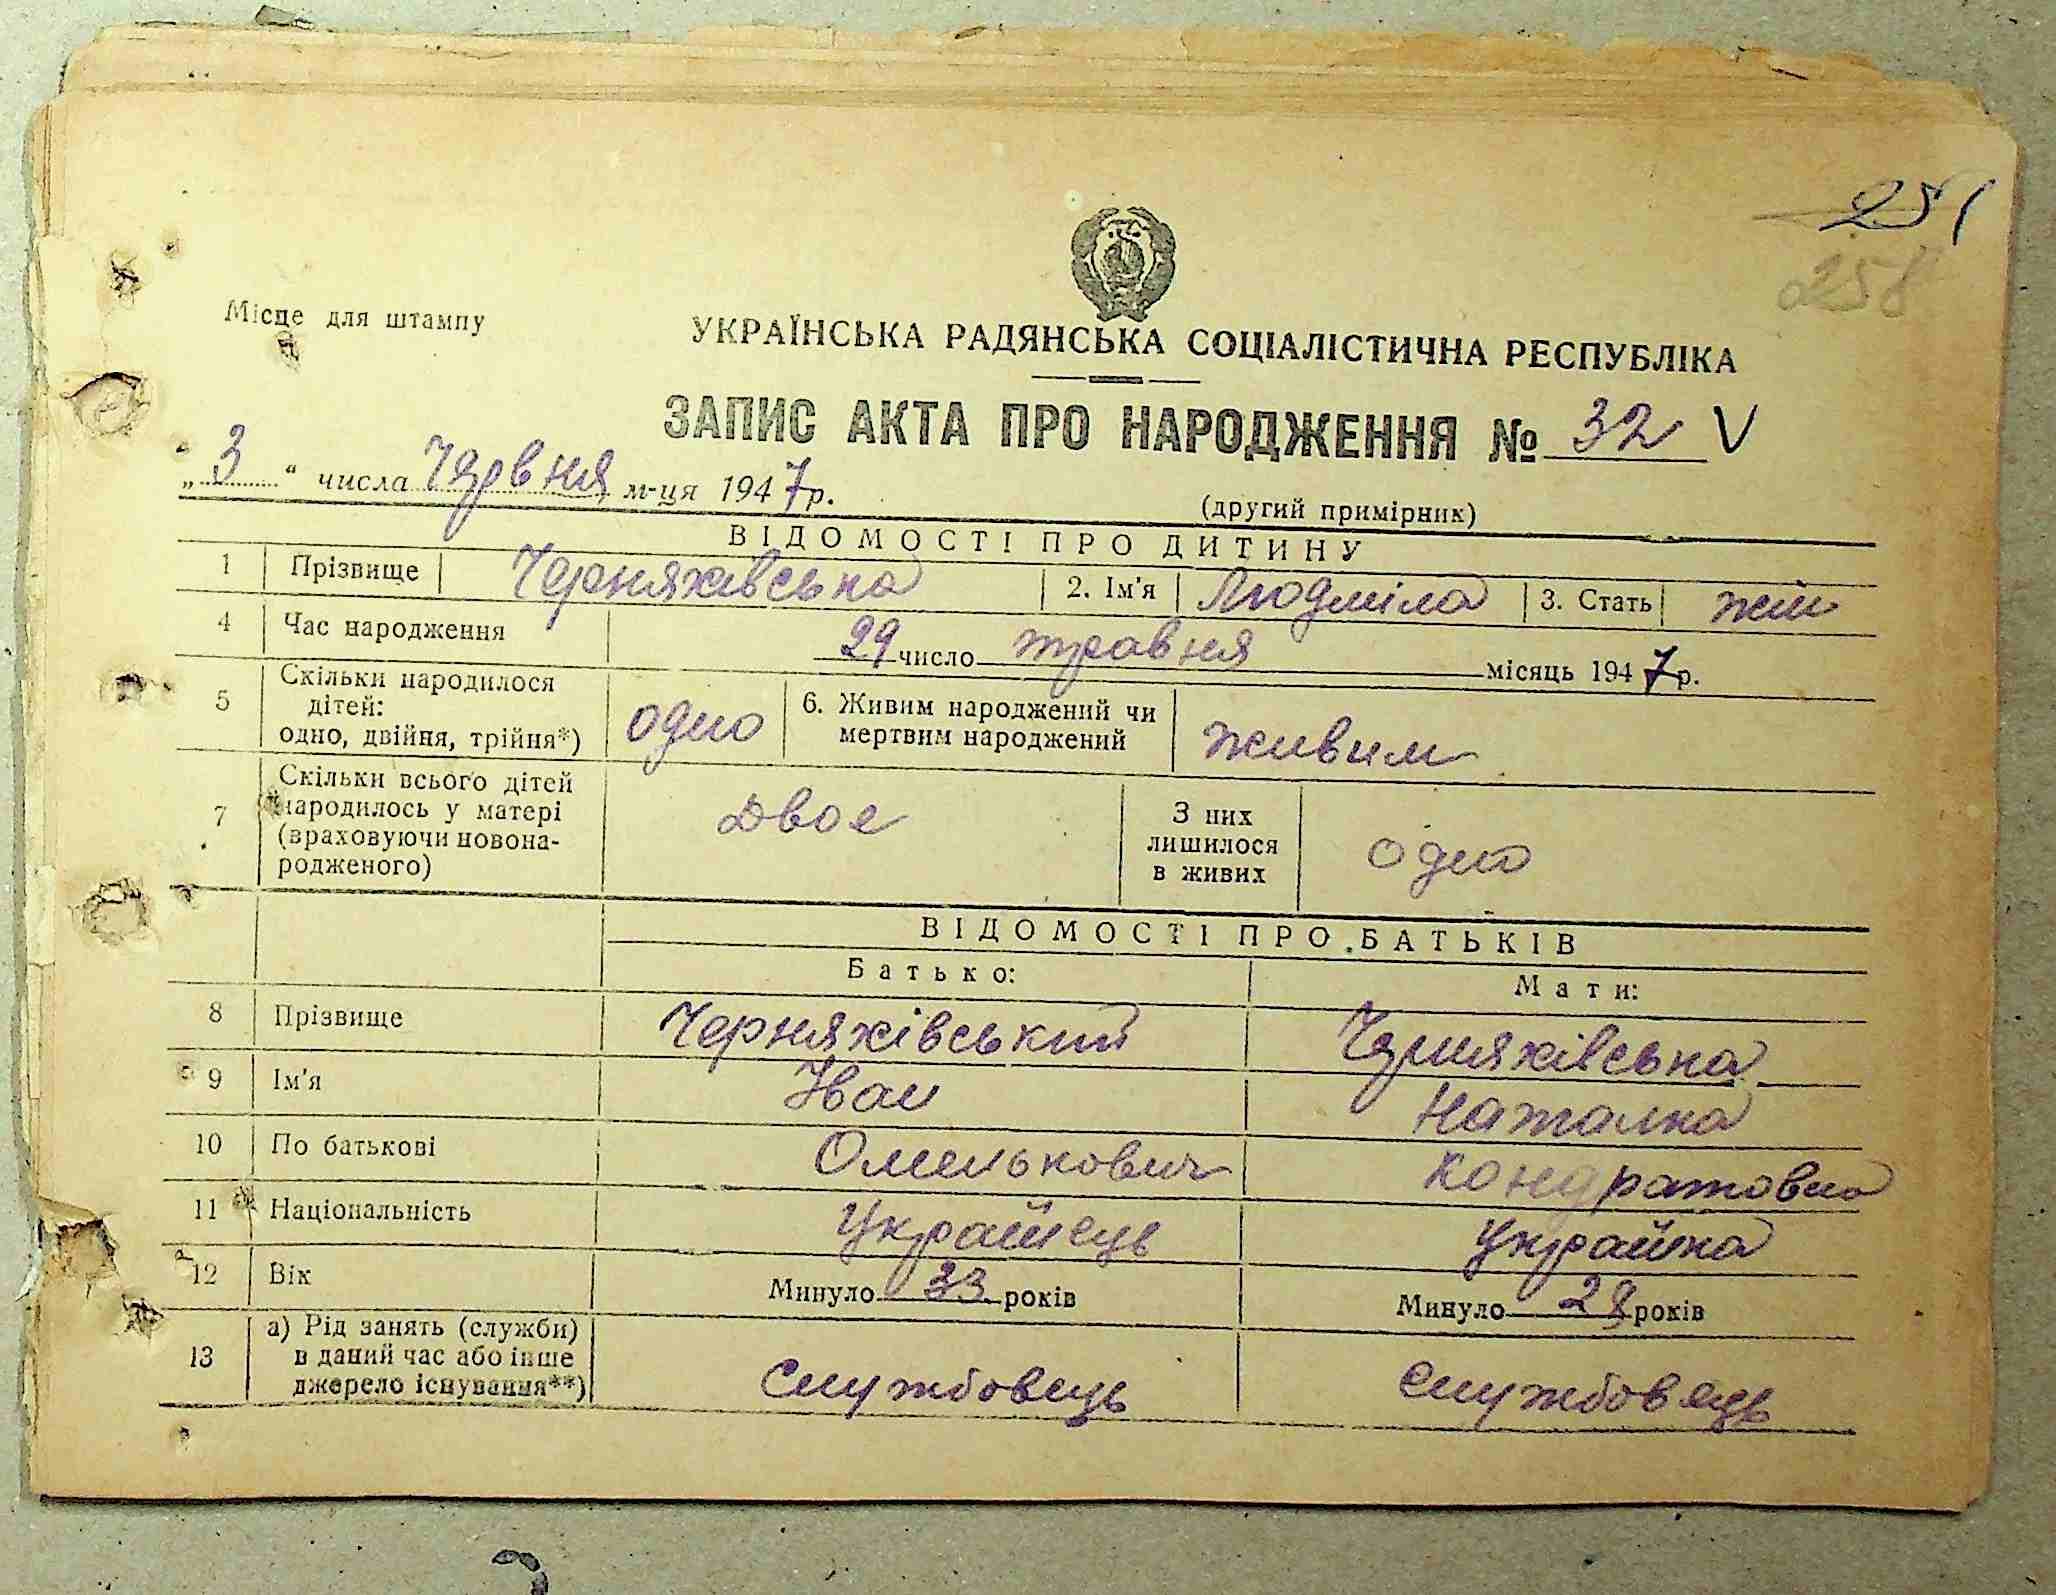 251
258
Місце для штампу
УКРАЇНСЬКА РАДЯНСЬКА СОЦІАЛІСТИЧНА РЕСПУБЛІКА
ЗАПИС АКТА ПРО НАРОДЖЕННЯ № 32 V
„3“ числа Червня м-ця 1947р.
(другий примірник)
ВІДОМОСТІ ПРО ДИТИНУ
1 Прізвище Черняхівська 2. Ім'я Людміла 3. Стать жін
4 Час народження 29 число травня місяць 1947р.
5 Скільки народилося дітей: одно, двійня, трійня*) одно 6. Живим народжений чи мертвим народжений живим
7 Скільки всього дітей народилось у матері (враховуючи новонародженого) Двое З них лишилося в живих одно
ВІДОМОСТІ ПРО БАТЬКІВ
Батько: Мати:
8 Прізвище Черняхівський Черняхівська
9 Ім'я Іван Наталка
10 По батькові Омелькович Кондратовна
11 Національність Українець Українка
12 Вік Минуло 33 років Минуло 28 років
13 а) Рід занять (служби) в даний час або інше джерело існування**) службовець службовець